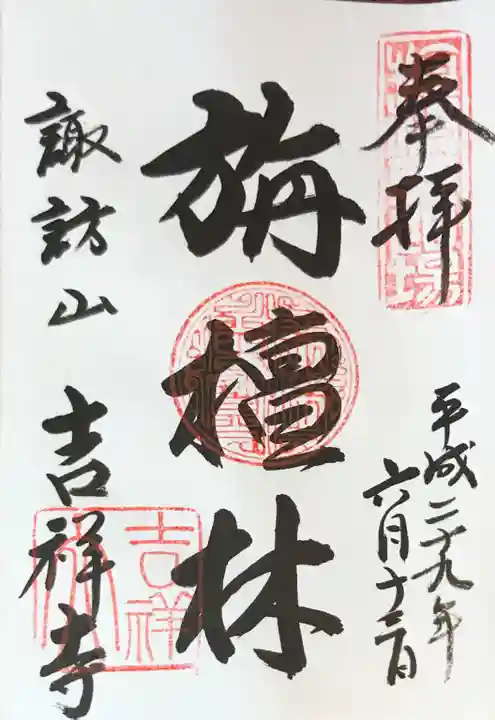 奉拝
平成二十九年
六月十三日
旃檀林
諏訪山 吉祥寺
吉祥